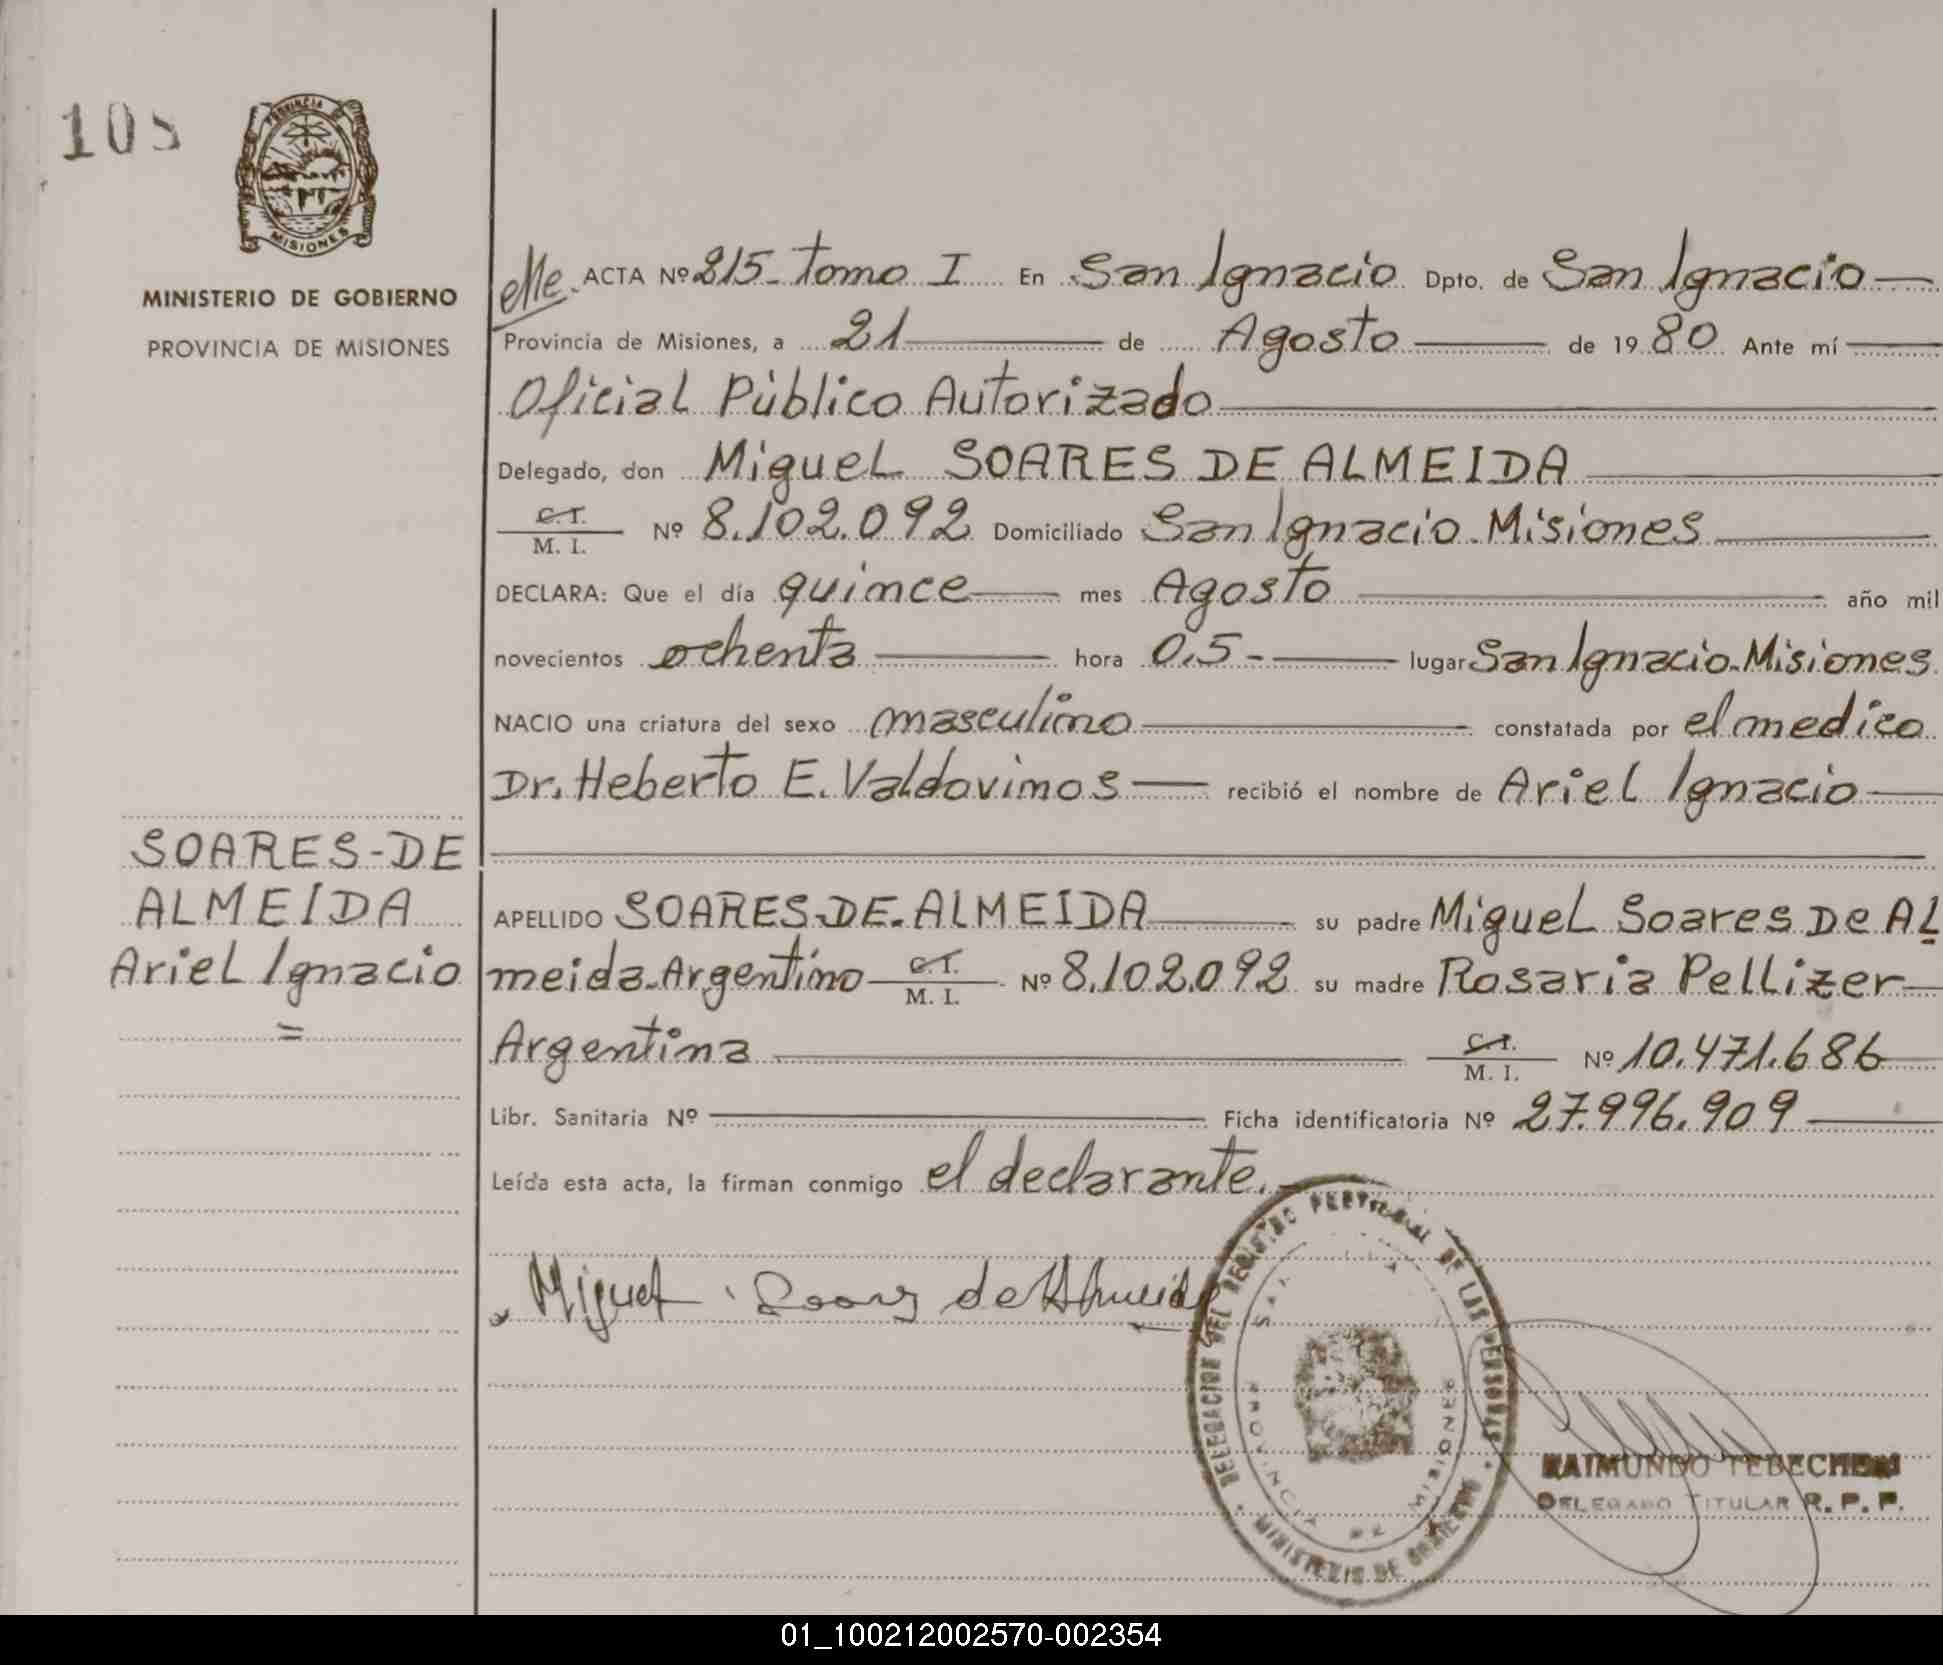 105
PROVINCIA DE
MISIONES
MINISTERIO DE GOBIERNO
PROVINCIA DE MISIONES
SOARES-DE
ALMEIDA
Ariel Ignacio
=
ACTA Nº 215- Tomo I En San Ignacio Dpto. de San Ignacio
Provincia de Misiones, a 21 de Agosto de 1980 Ante mí
Oficial Público Autorizado
Delegado, don Miguel SOARES DE ALMEIDA
C.I.
M. I. Nº 8.102.092 Domiciliado San Ignacio. Misiones
DECLARA: Que el día quince mes Agosto año mil
novecientos ochenta hora 0,5- lugar San Ignacio. Misiones
NACIO una criatura del sexo masculino constatada por el medico
Dr. Heberto E. Valdovinos recibió el nombre de Ariel Ignacio
APELLIDO SOARES-DE-ALMEIDA su padre Miguel Soares De Al
meida-Argentino C.I.
M. I. Nº 8.102.092 su madre Rosaria Pellizer
Argentina C.I.
M. I. Nº 10.471.686
Libr. Sanitaria Nº Ficha identificatoria Nº 27.996.909
Leída esta acta, la firman conmigo el declarante.
Miguel Soares de Almeida
DELEGACION DEL REGISTRO PROVINCIAL DE LAS PERSONAS
SAN
PROVINCIA DE MISIONES
MINISTERIO DE GOBIERNO
RAIMUNDO
DELEGADO TITULAR R. P. P.
01_100212002570-002354